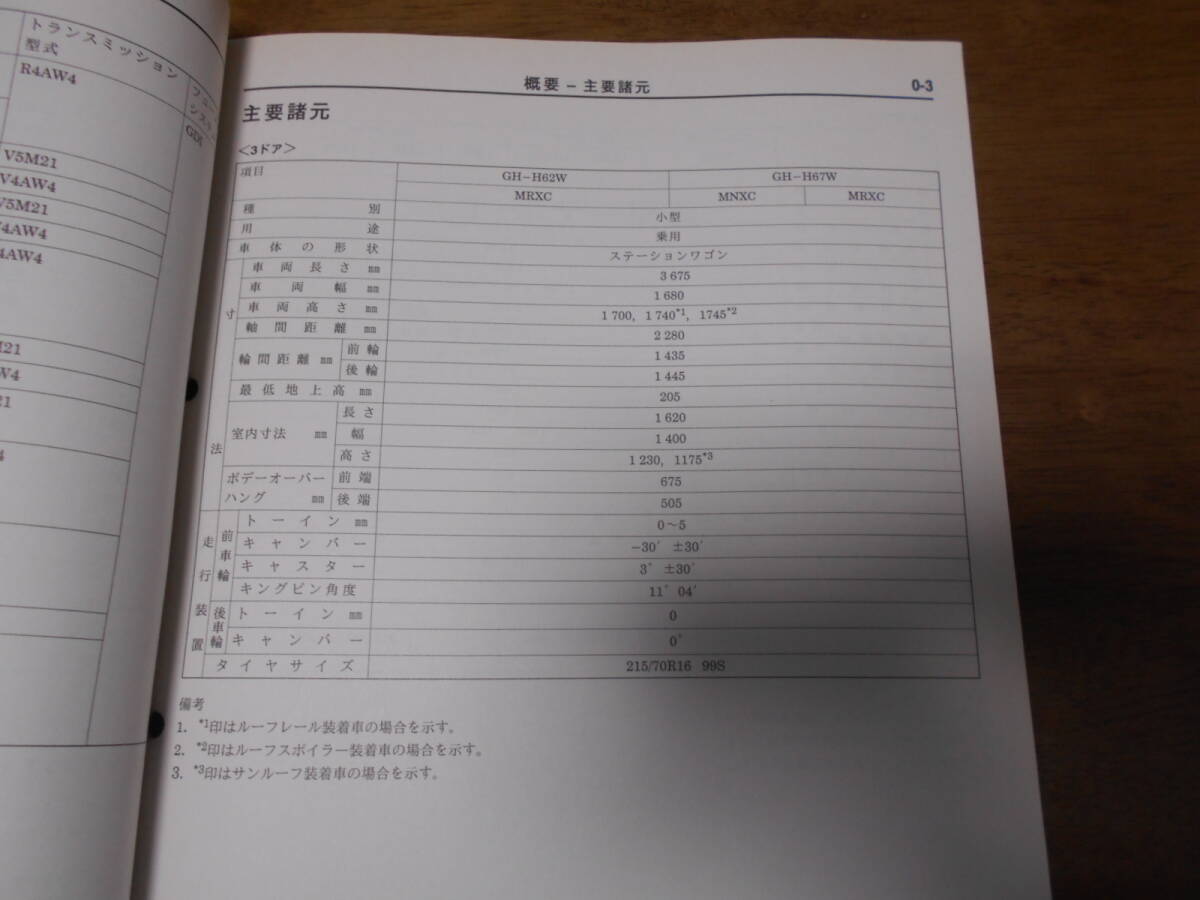 トランスミッション
型式
R4AW4
GDI
V5M21
V4AW4
V5M21
V4AW4
4AW4
M21
W4
21
4
概要 − 主要諸元 0-3
主要諸元
<3ドア>
項目 GH−H62W GH−H67W
MRXC MNXC MRXC
種別 小型
用途 乗用
車体の形状 ステーションワゴン
寸法 車両長さ mm 3 675
車両幅 mm 1 680
車両高さ mm 1 700, 1 740*1, 1745*2
軸間距離 mm 2 280
輪間距離 mm 前輪 1 435
後輪 1 445
最低地上高 mm 205
室内寸法 mm 長さ 1 620
幅 1 400
高さ 1 230, 1175*3
ボデーオーバー 前端 675
ハング mm 後端 505
走行装置 前車輪 トーイン mm 0〜5
キャンバー −30′ ±30′
キャスター 3° ±30′
キングピン角度 11° 04′
後車輪 トーイン mm 0
キャンバー 0°
タイヤサイズ 215/70R16 99S
備考
1. *1印はルーフレール装着車の場合を示す。
2. *2印はルーフスポイラー装着車の場合を示す。
3. *3印はサンルーフ装着車の場合を示す。